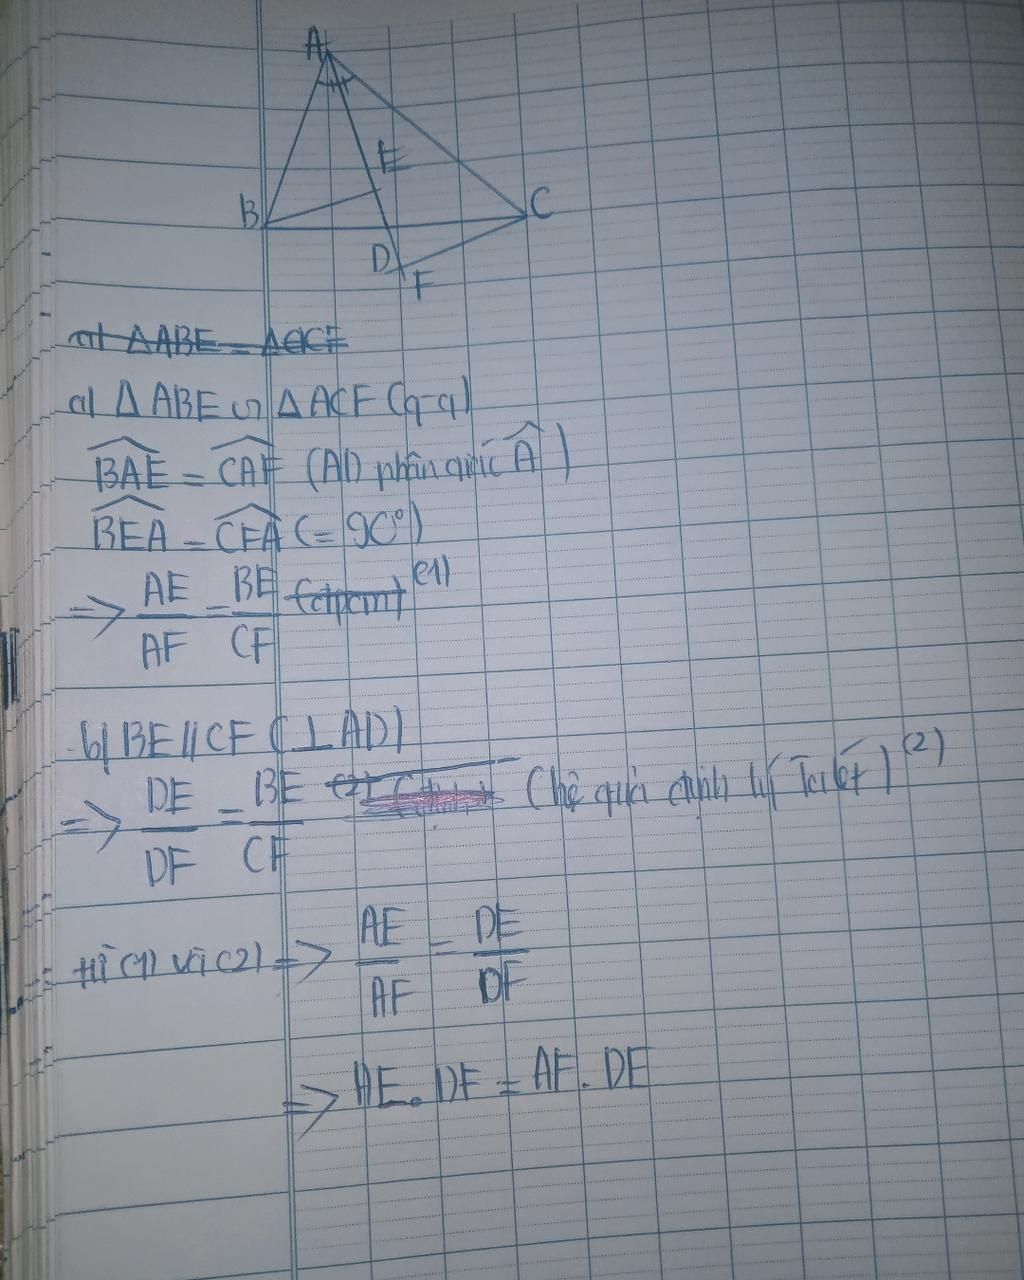 A
E
B
C
D
F
a) ΔABE = ΔACF
a) ΔABE ∽ ΔACF (g-g)
BAE = CAF (AD phân giác Â)
BEA = CFA (= 90°)
=> AE/AF = BE/CF (đpcm) (1)
b) BE // CF (⊥ AD)
=> DE/DF = BE/CF (2) (hệ quả định lý Talét) (2)
từ (1) và (2) => AE/AF = DE/DF
=> AE. DF = AF. DE